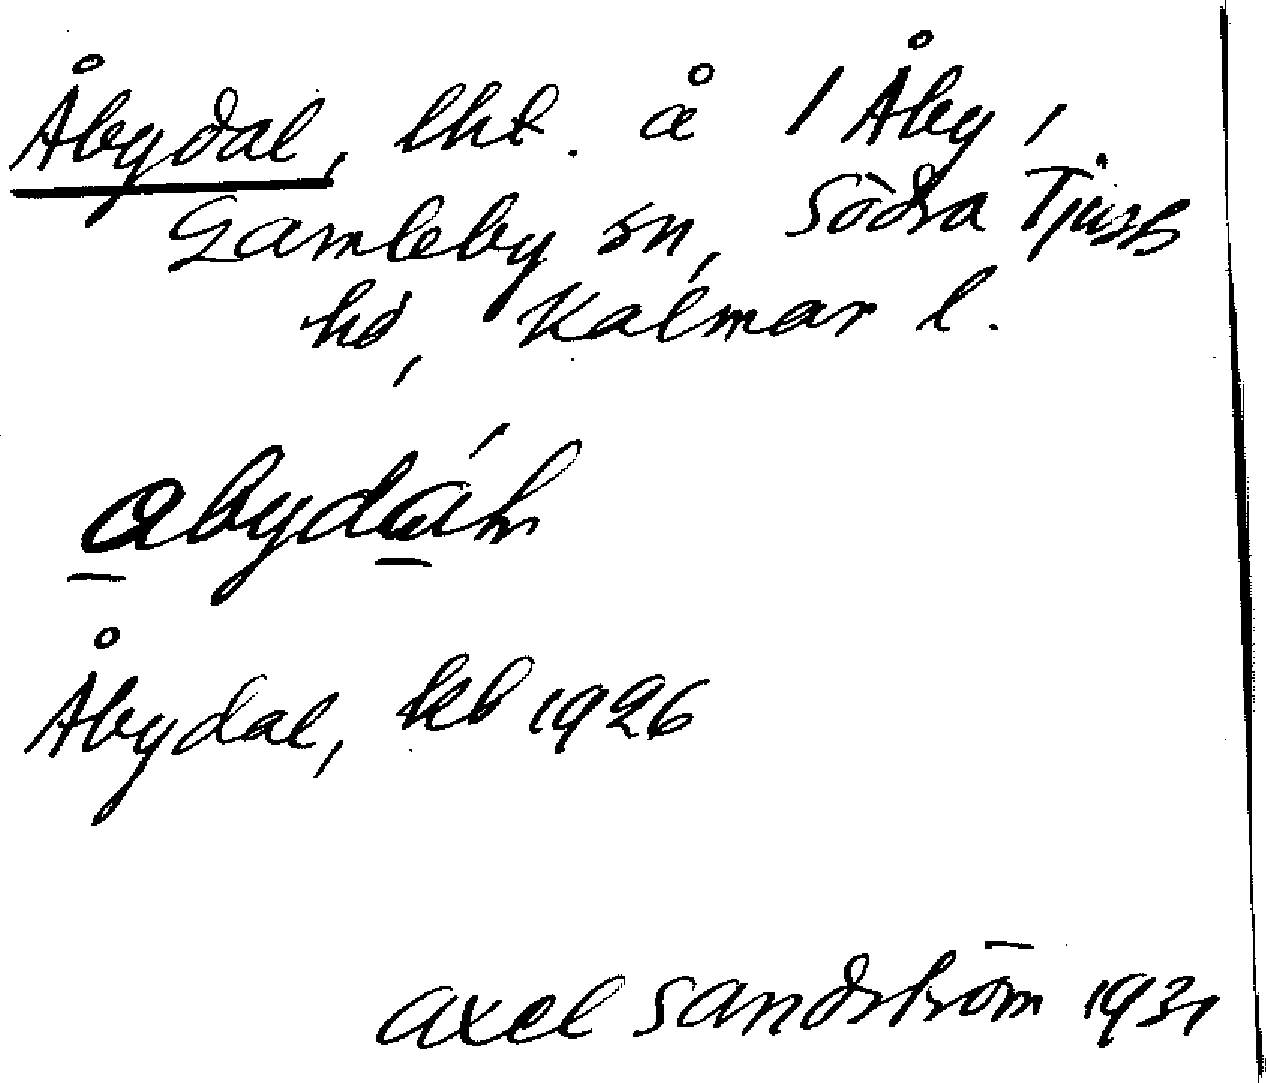 Åbydal, lht. å 1 Åby,
Gamleby sn, Södra Tjust
hd, Kalmar l.
abydáln
Åbydal, kb 1926
Axel Sandström 1931